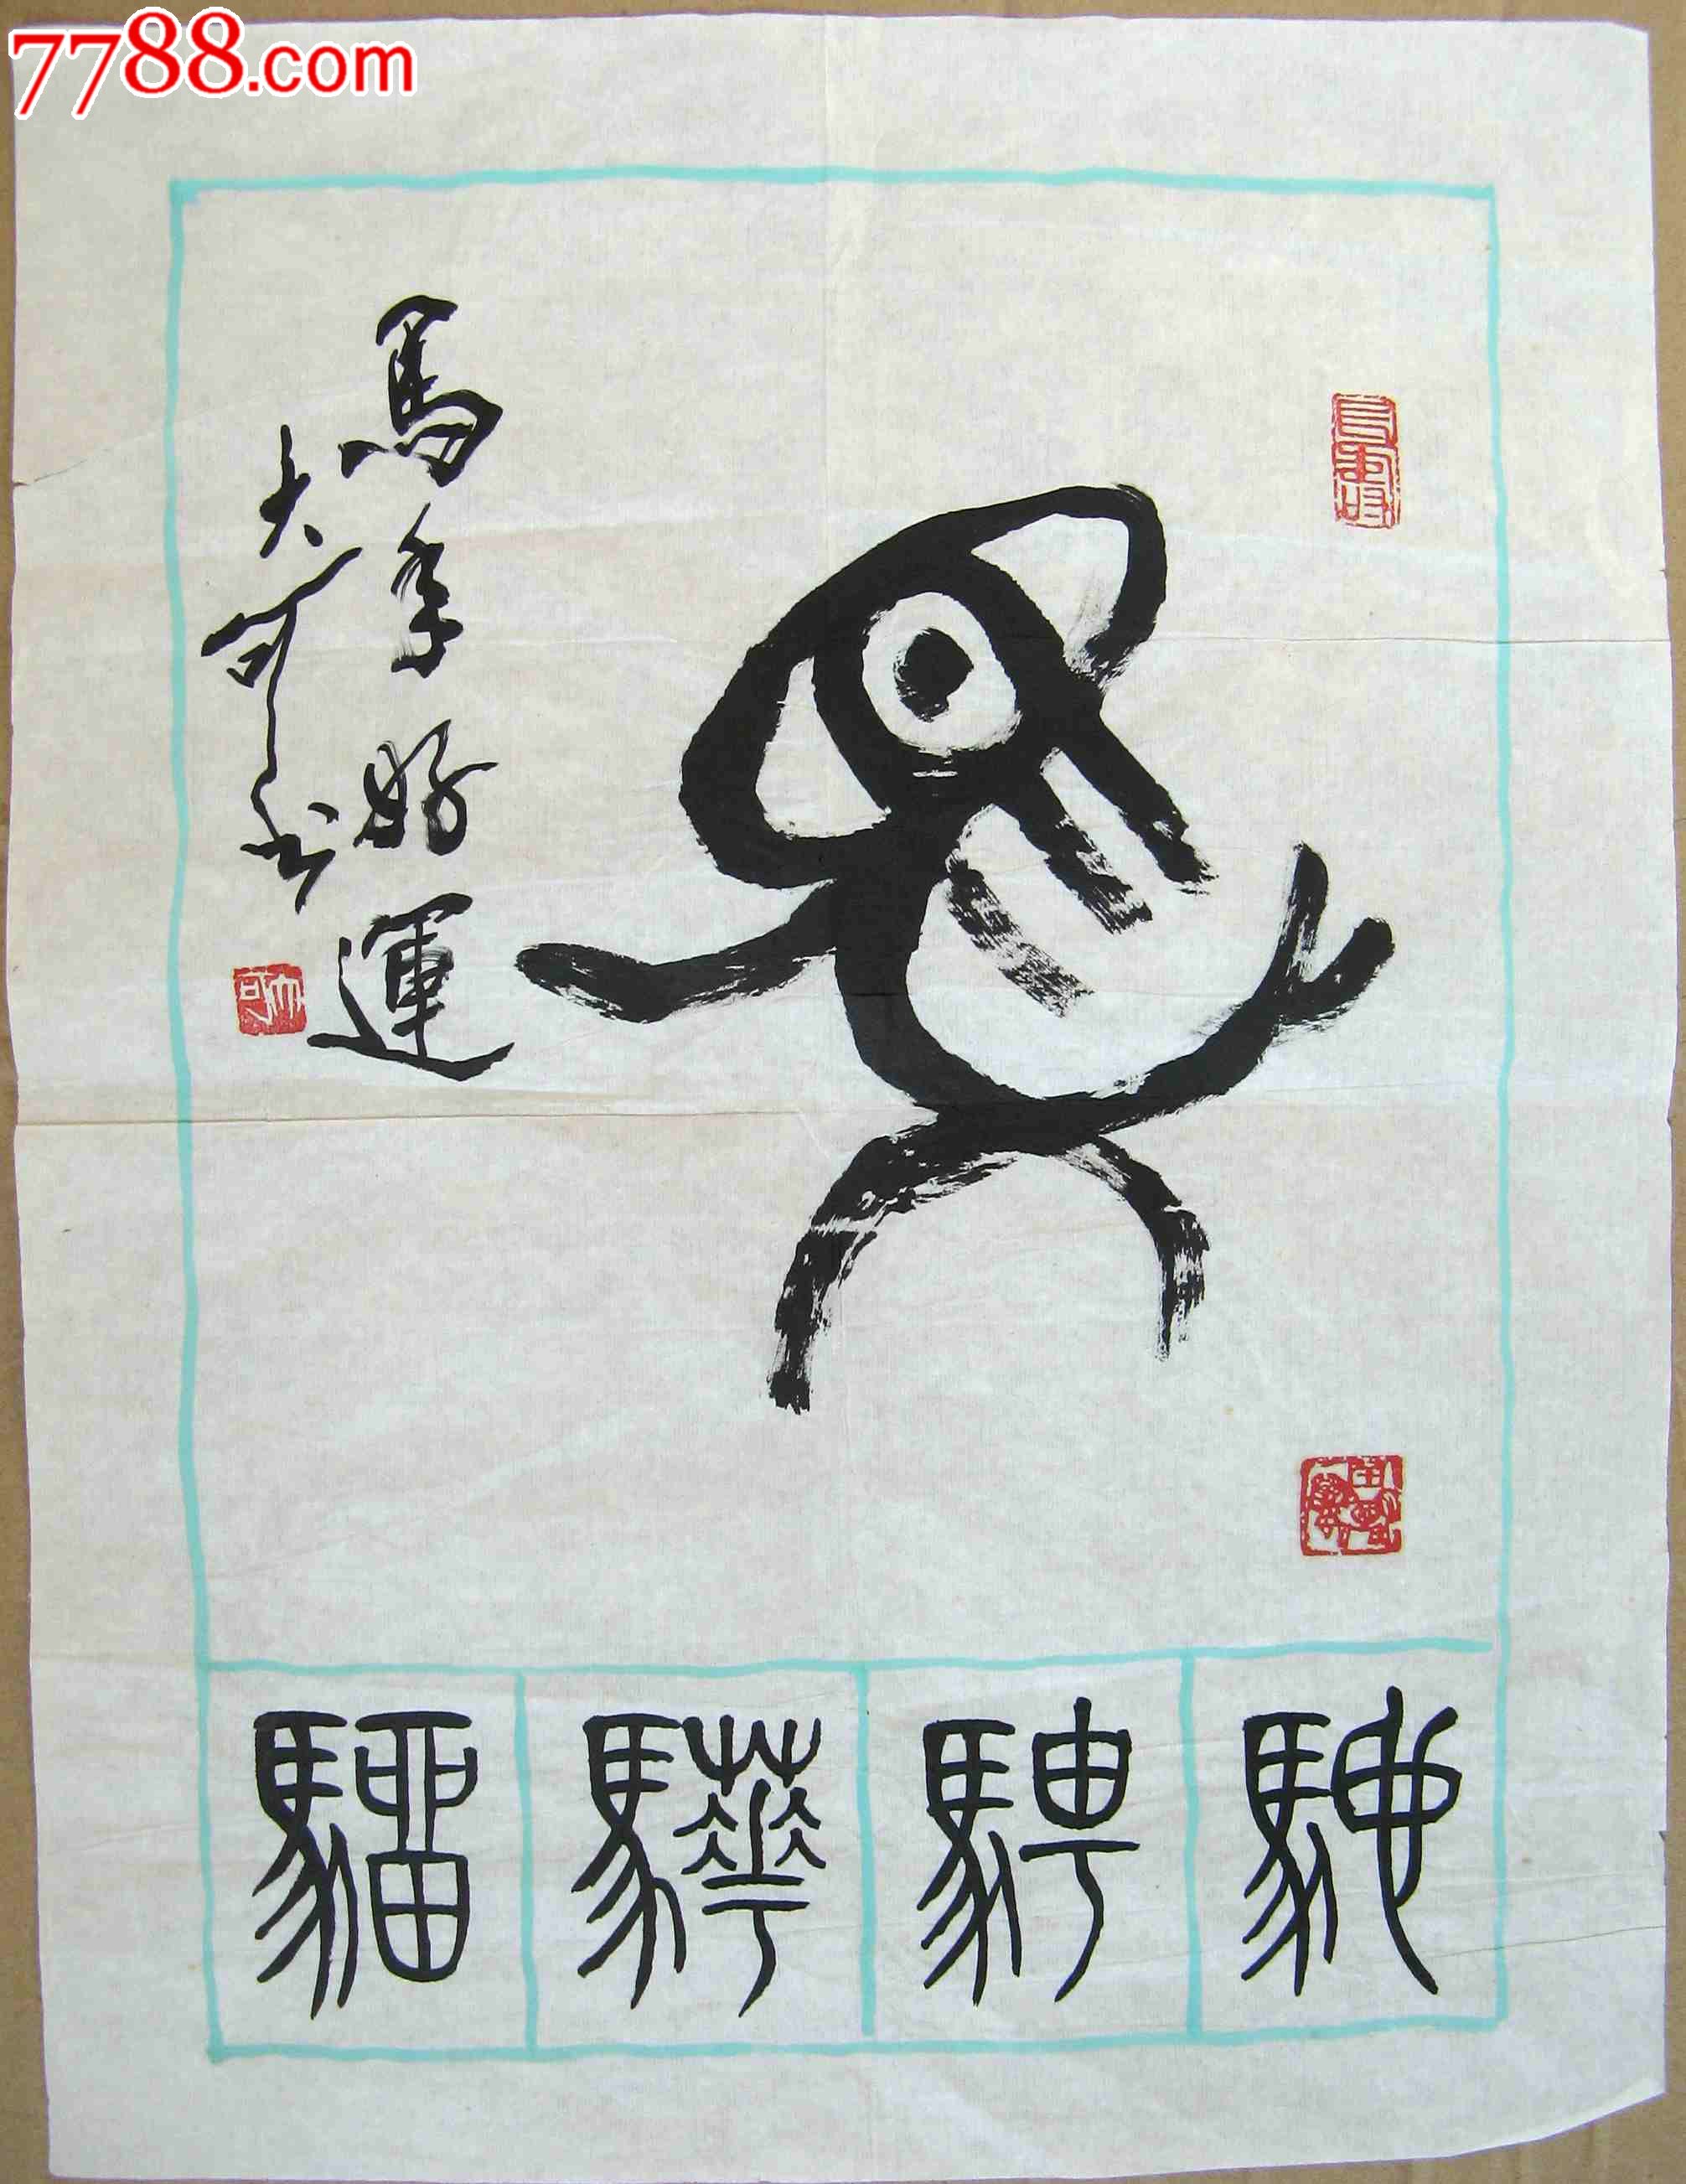 7788.com
馬年好運
大可书
大可
馳騁驊騮